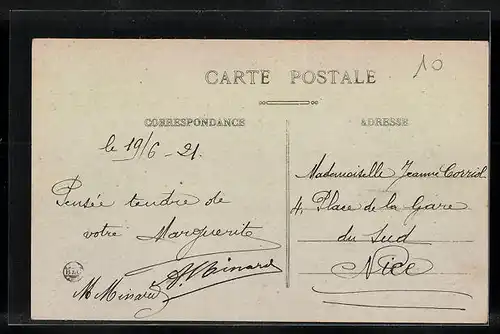 10
CARTE POSTALE
CORRESPONDANCE
le 19/6-21.
Pensée tendre de
votre Marguerite
A. Minard
M Minard
ADRESSE
Mademoiselle Jeanne Corriol
4, Place de la Gare
du Sud
Nice